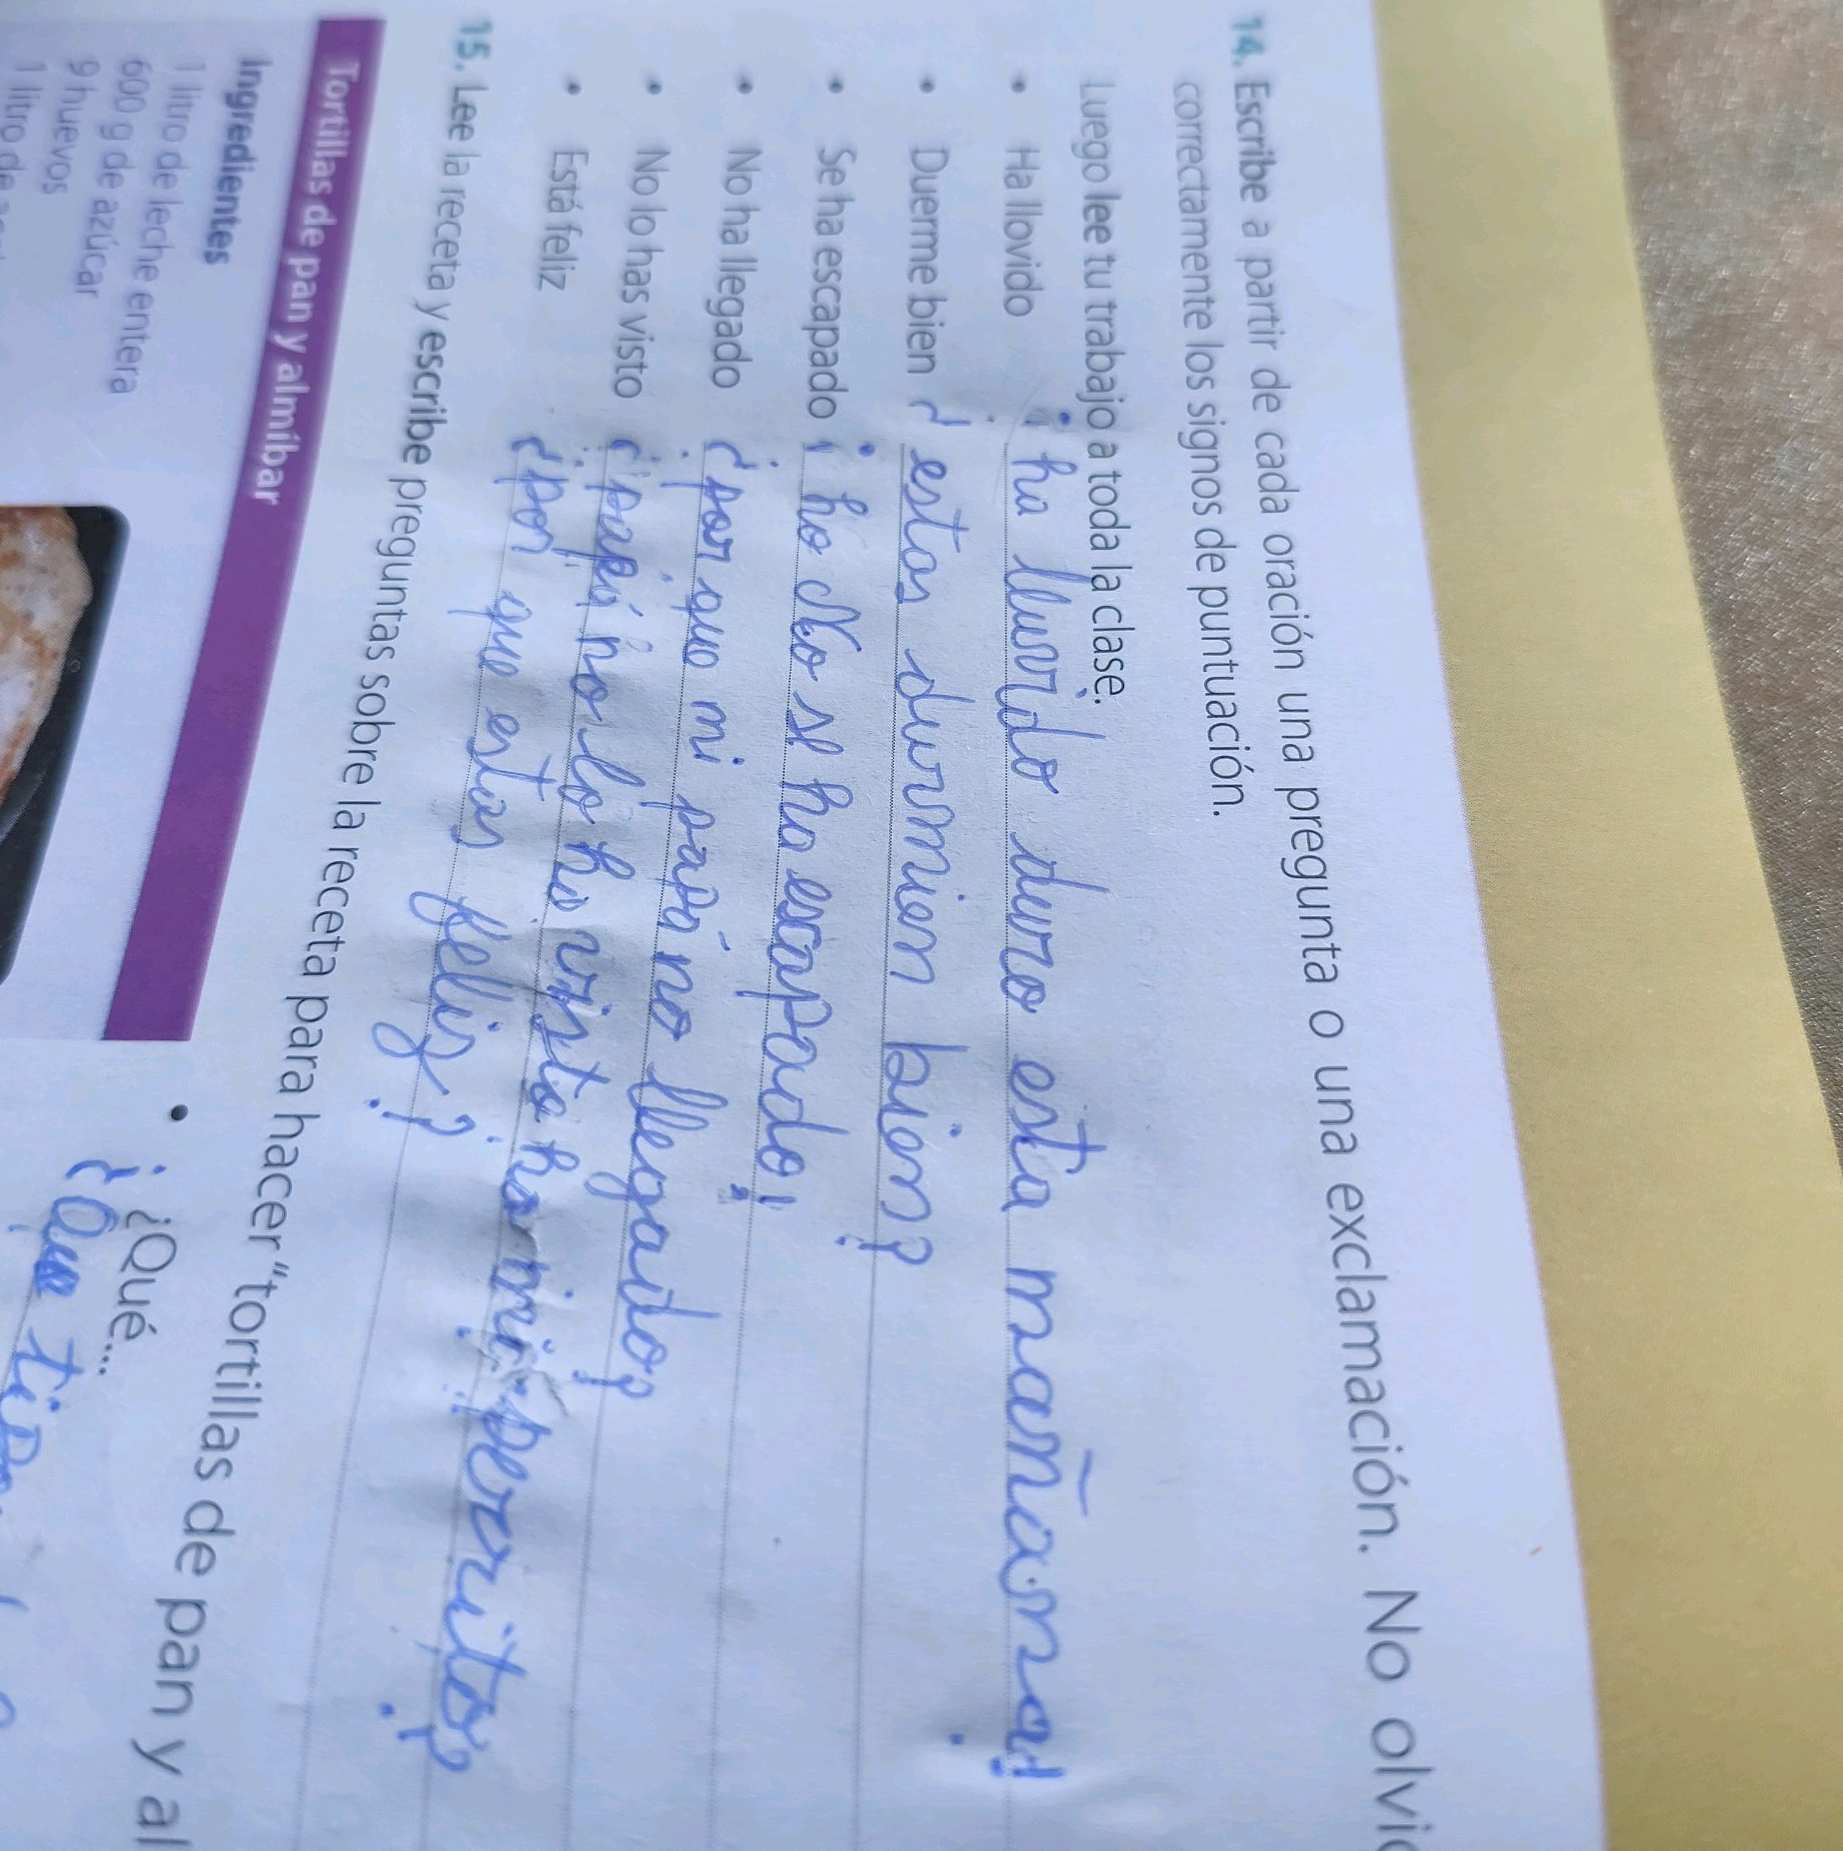 14. Escribe a partir de cada oración una pregunta o una exclamación. No olvi
correctamente los signos de puntuación.
Luego lee tu trabajo a toda la clase.
• Ha llovido ¡ha lluvido duro esta mañana!
• Duerme bien ¿estas durmien bien?
• Se ha escapado ¡ho No se ha escapado!
• No ha llegado ¿por que mi papá no llegado?
• No lo has visto ¿papá no lo ha visto ha mi perrito?
• Está feliz ¿por que estas feliz?
15. Lee la receta y escribe preguntas sobre la receta para hacer "tortillas de pan y al
Tortillas de pan y almíbar
Ingredientes
1 litro de leche entera
600 g de azúcar
9 huevos
1 litro de
• ¿Qué...
¿Que